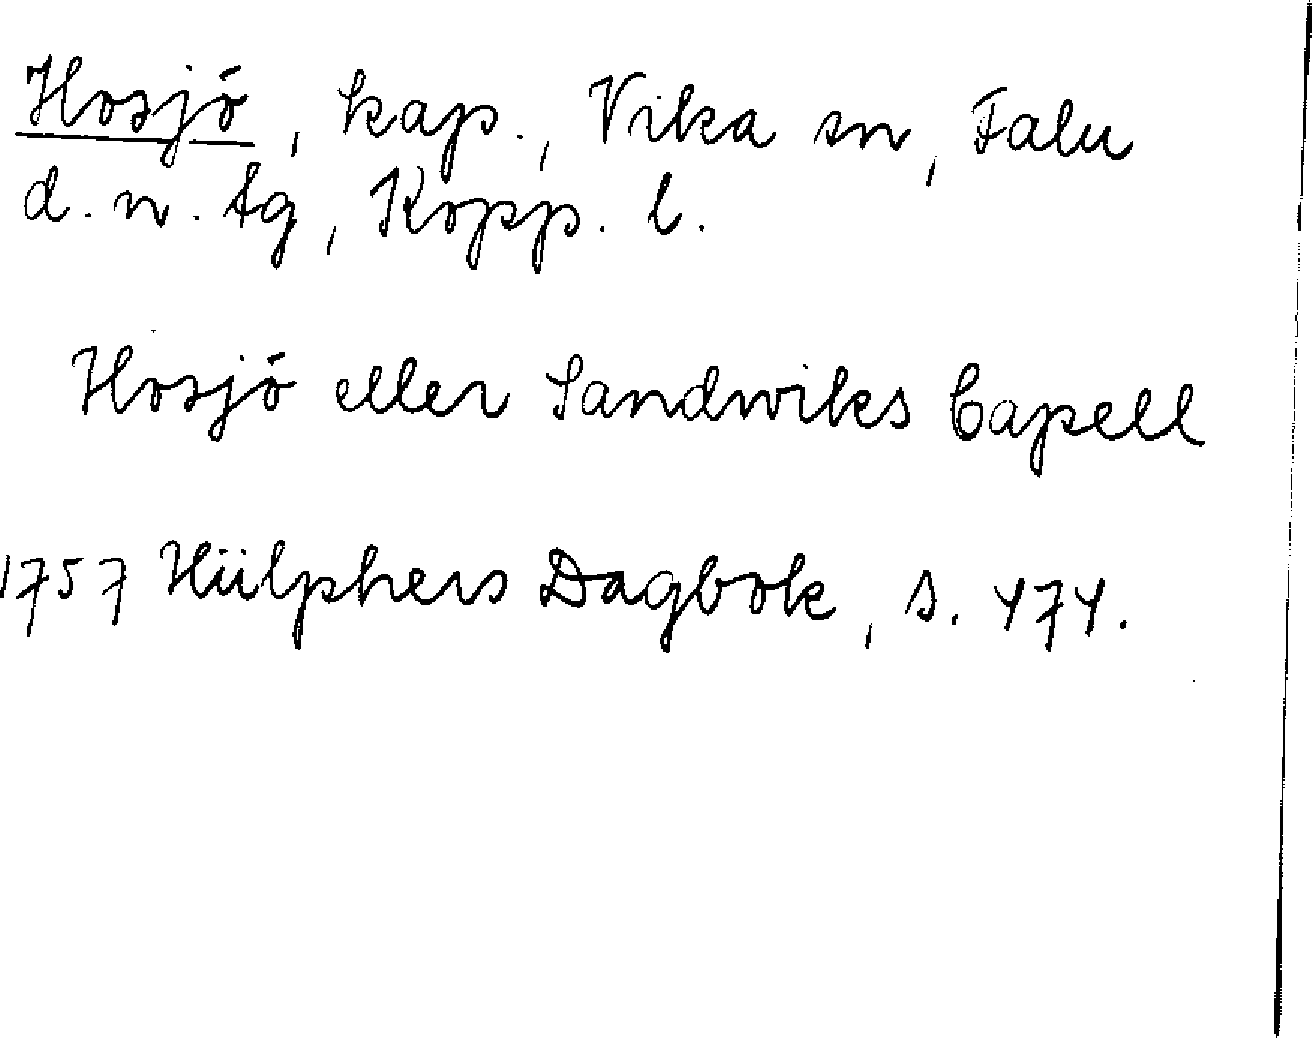 Hosjö, kap., Vika sn, Falu
d.n. tg, Kopp. l.
Hosjö eller Sandwiks Capell
1757 Hülphers Dagbok, s. 474.